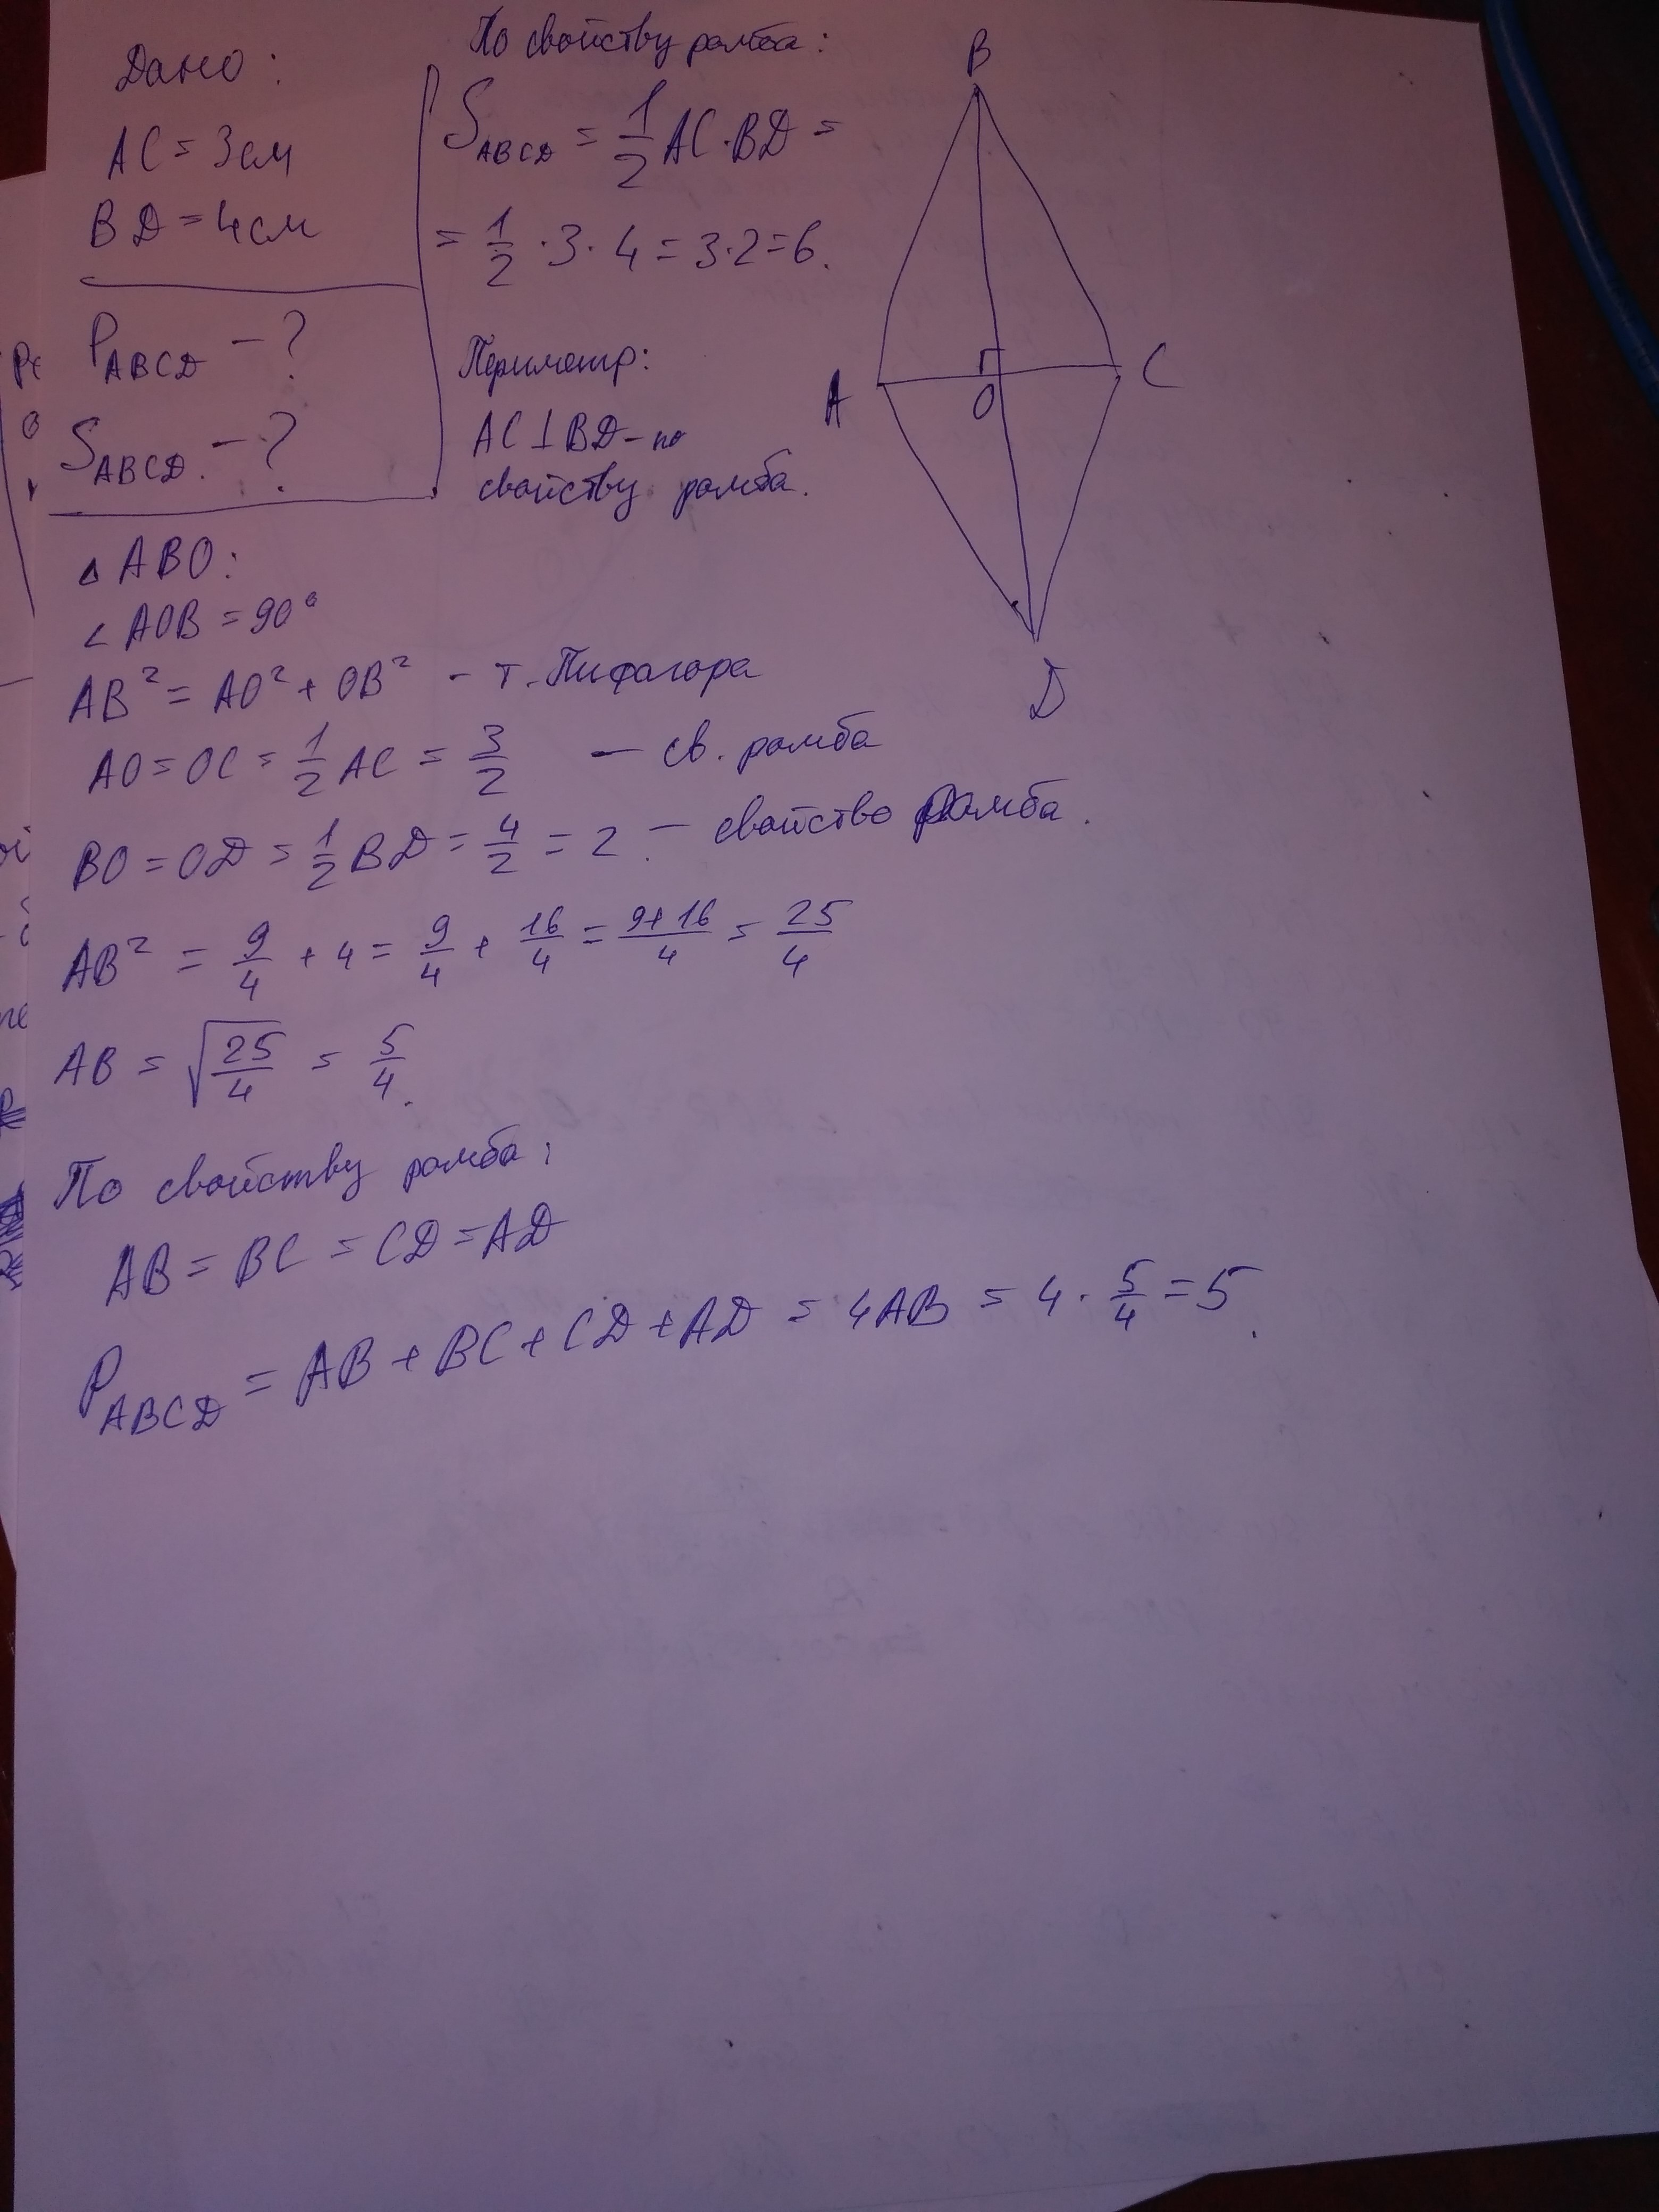 Дано:
AC = 3см
BD = 4см
P ABCD - ?
S ABCD. - ?
По свойству ромба:
S ABCD = 1/2 AC · BD =
= 1/2 · 3 · 4 = 3 · 2 = 6.
Периметр:
AC ⊥ BD - по
свойству ромба.
B
A
O
C
D
△ ABO:
∠ AOB = 90°
AB² = AO² + OB² - т. Пифагора
AO = OC = 1/2 AC = 3/2 — св. ромба
BO = OD = 1/2 BD = 4/2 = 2. — свойство ромба.
AB² = 9/4 + 4 = 9/4 + 16/4 = 9+16/4 = 25/4
AB = √25/4 = 5/4.
По свойству ромба:
AB = BC = CD = AD
P ABCD = AB + BC + CD + AD = 4AB = 4 · 5/4 = 5.